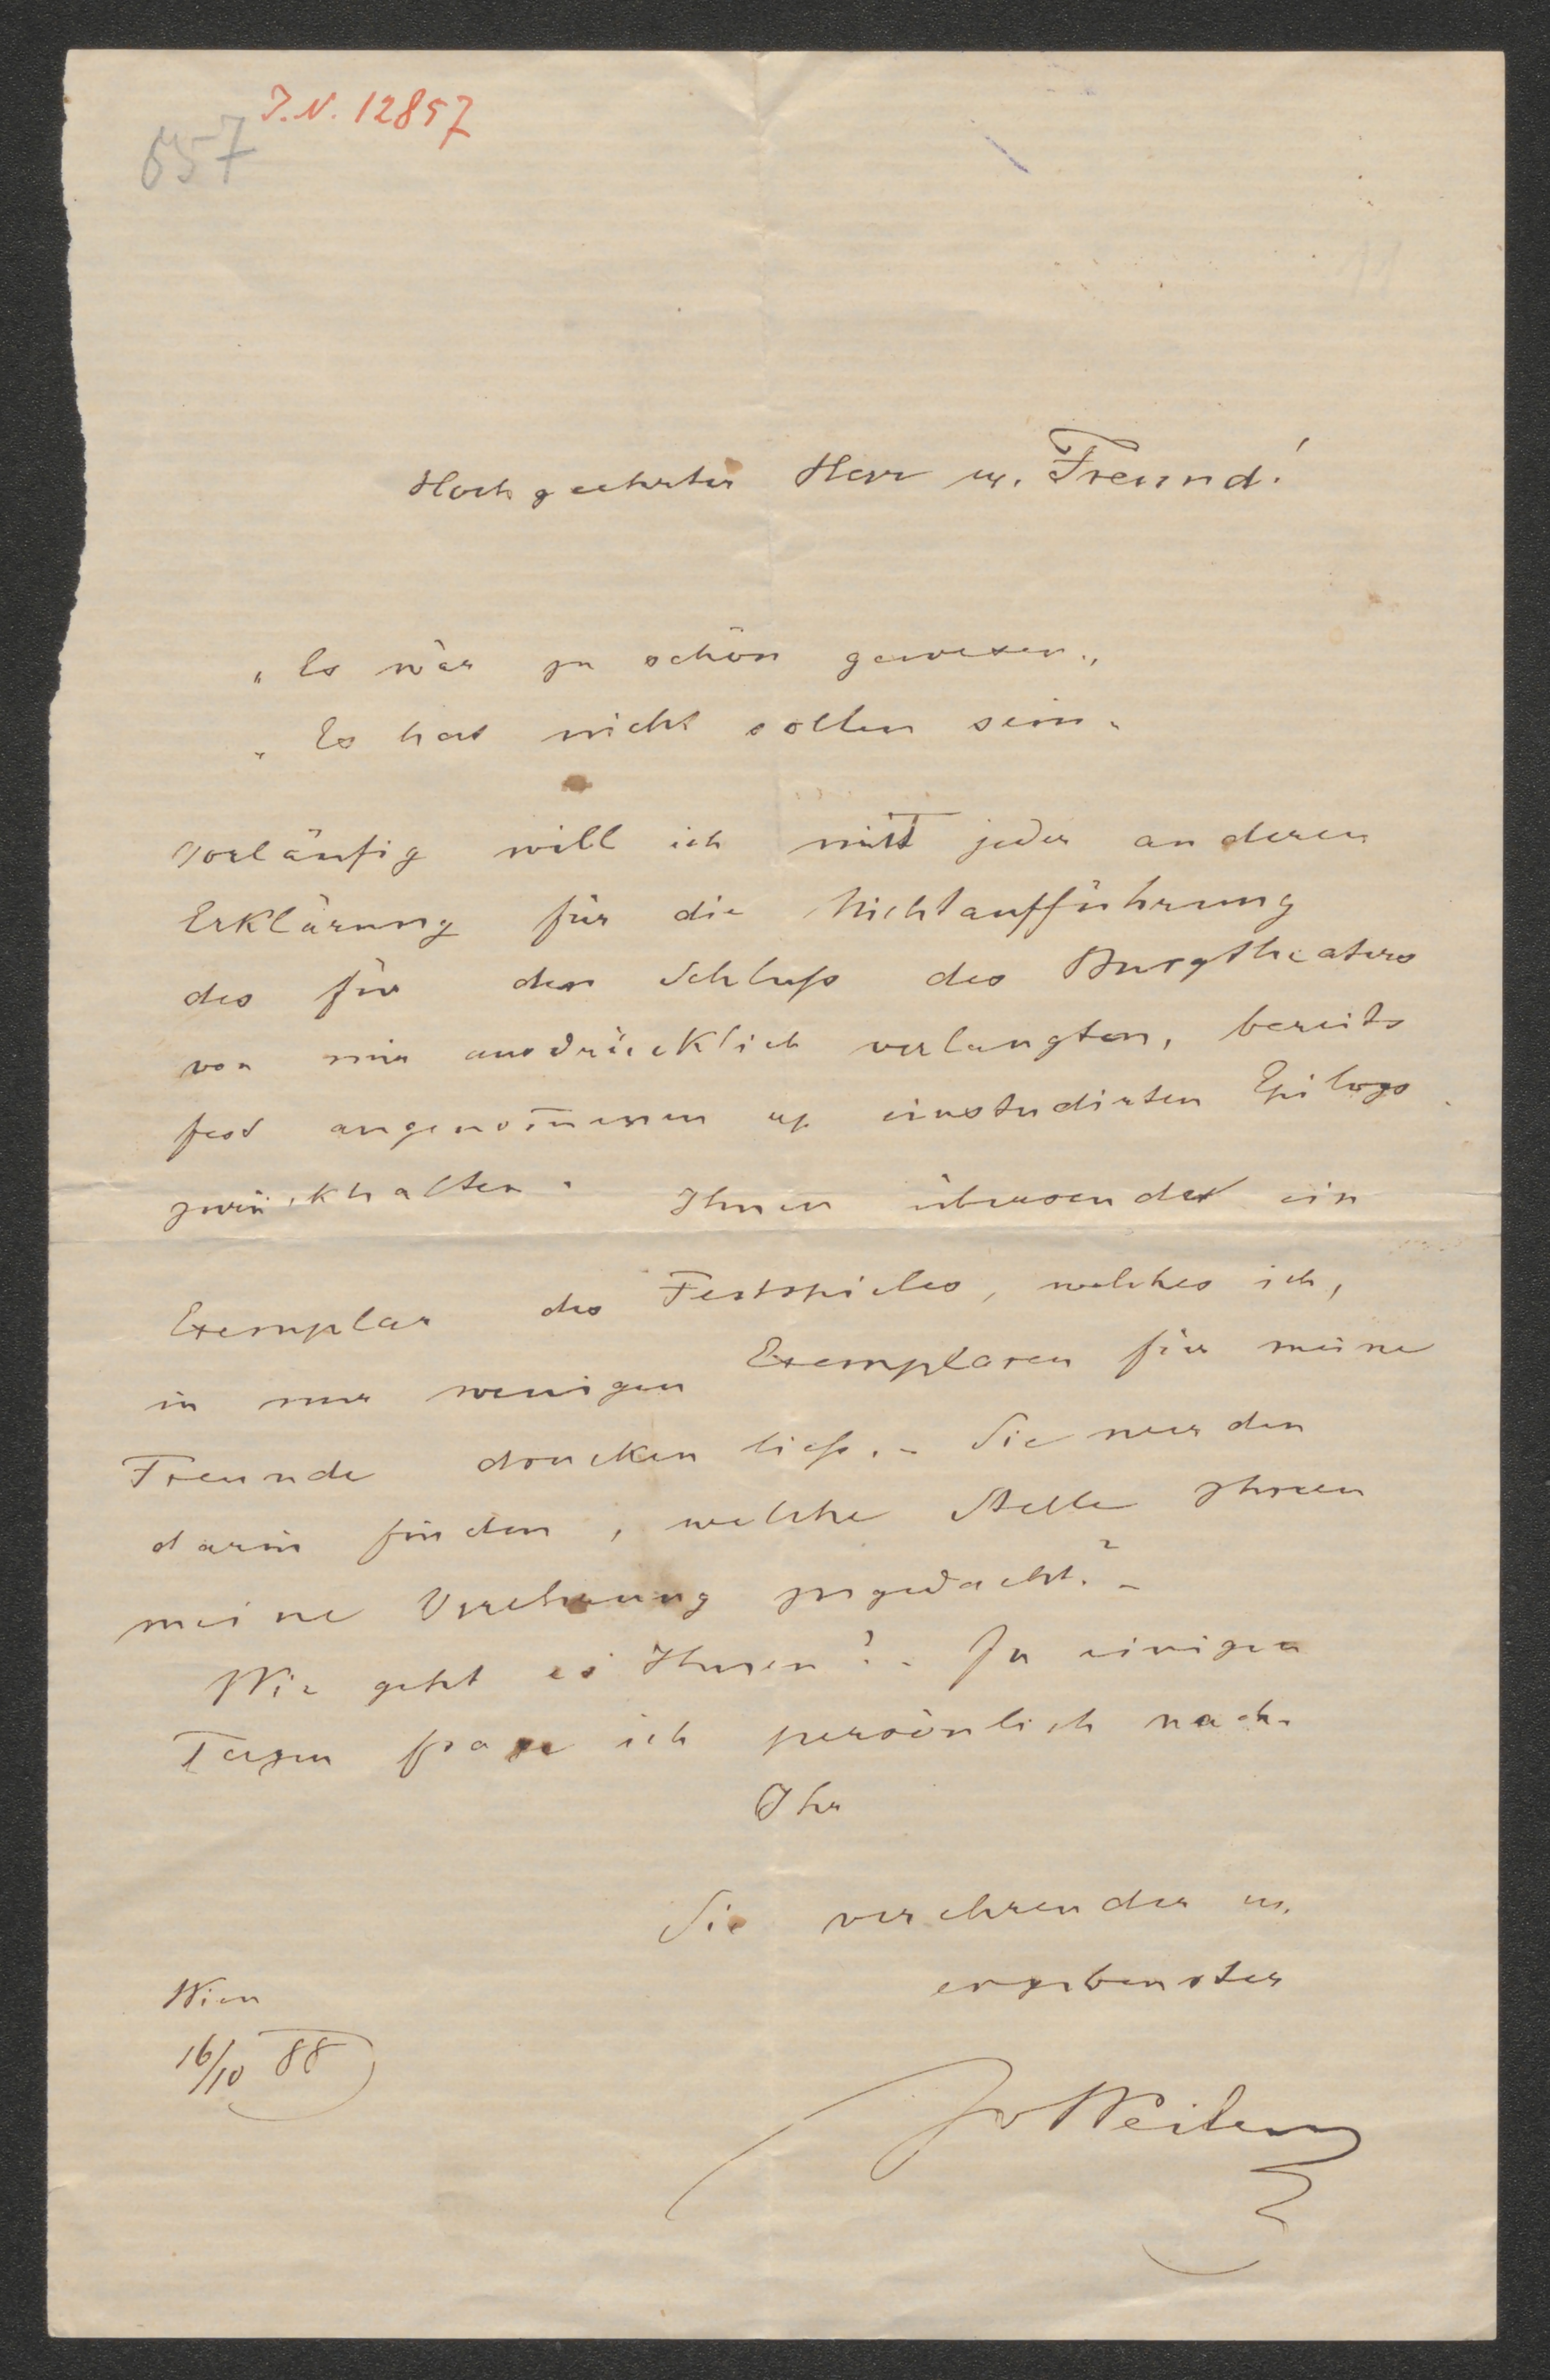 J.N. 12857
657
Hochgeehrter Herr u. Freund!
"Es wär zu schön gewesen.,
"Es hat nicht sollen sein."
Vorläufig will ich mit jeder anderen
Erklärung für die Nichtaufführung
des für den Schluß des Burgtheaters
von mir ausdrücklich verlangten, bereits
fest angenom̅enen u. einstudirten Epilogs
zurückhalten. Ihnen übersendet ein
Exemplar des Festspieles, welches ich,
in nur wenigen Exemplaren für meine
Freunde drucken ließ. – Sie werden
darin finden, welche Stelle Ihnen
meine Verehrung zugedacht? –
Wie geht es Ihnen? – In einigen
Tagen frage ich persönlich nach.
Ihr
Sie verehrender u.
ergebenster
Wien
16/10 88
JvWeilen